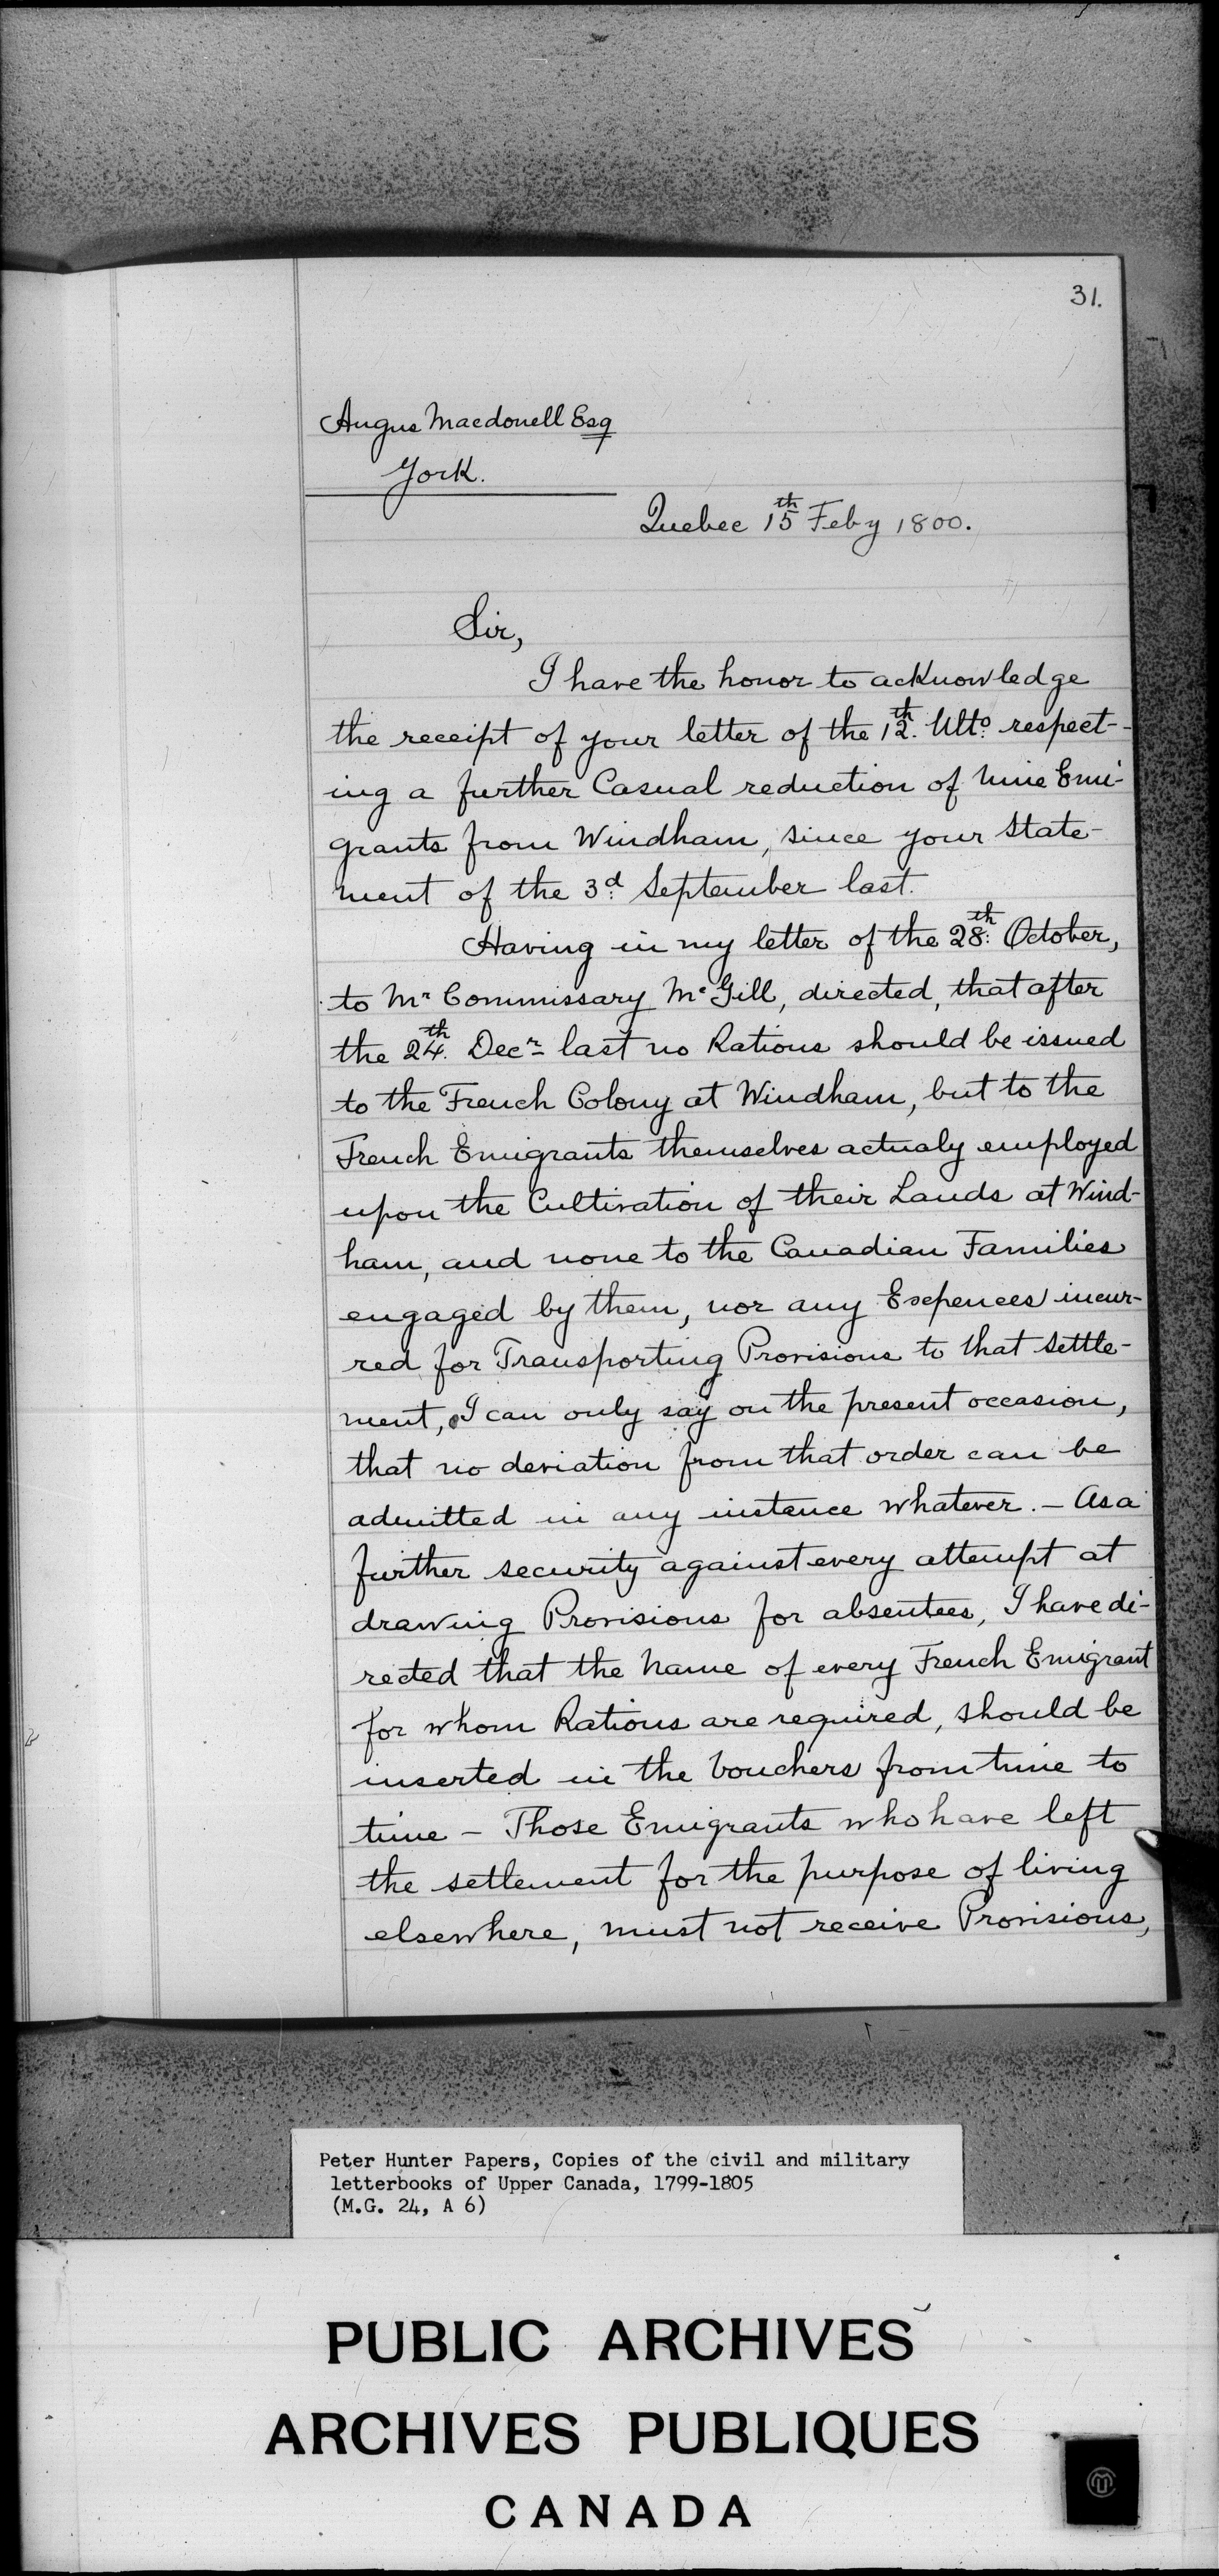 31.
Angus Macdonell Esq
York.
Quebec 15th Feby 1800.
Sir,
I have the honor to acknowledge
the receipt of your letter of the 12th. Ulto. respect-
ing a further Casual reduction of nine Emi-
grants from Windham, since your state-
ment of the 3d. September last.
Having in my letter of the 28th: October,
to Mr Commissary McGill, directed, that after
the 24th. Decr last no Rations should be issued
to the French Colony at Windham, but to the
French Emigrants themselves actualy employed
upon the Cultivation of their Lands at Wind-
ham, and none to the Canadian Families
engaged by them, nor any Expences incur-
red for Transporting Provisions to that settle-
ment, I can only say on the present occasion,
that no deviation from that order can be
admitted in any instance whatever. — As a
further security against every attempt at
drawing Provisions for absentees, I have di-
rected that the name of every French Emigrant
for whom Rations are required, should be
inserted in the Vouchers from time to
time — Those Emigrants who have left
the setlement for the purpose of living
elsewhere, must not receive Provisions,
Peter Hunter Papers, Copies of the civil and military
letterbooks of Upper Canada, 1799-1805
(M.G. 24, A 6)
PUBLIC ARCHIVES
ARCHIVES PUBLIQUES
CANADA